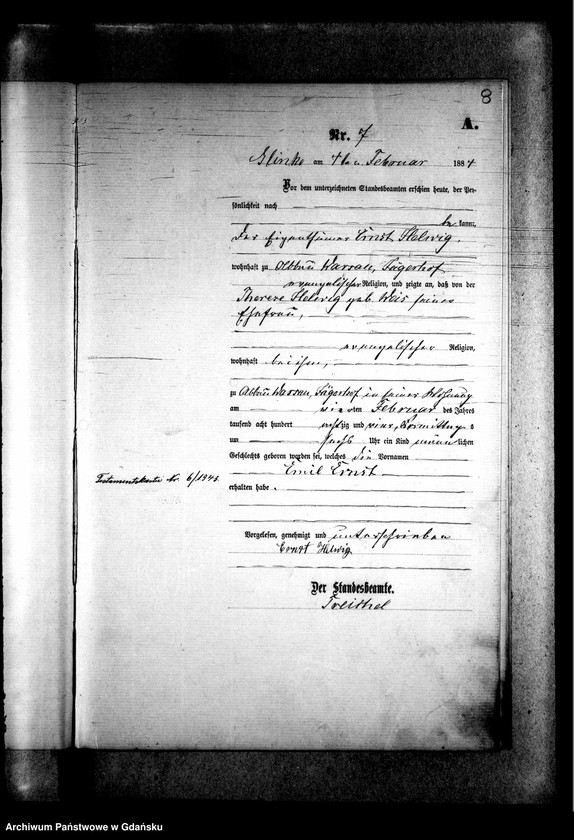 8
A.
Nr. 7
Glinke am 4ten Februar 1884
Vor dem unterzeichneten Standesbeamten erschien heute, der Per-
sönlichkeit nach
be kannt,
der Eigenthümer Ernst Helwig,
wohnhaft zu Abbau Warsau, Jägerhof
evangelischer Religion, und zeigte an, daß von der
Therese Helwig geb. Weis seiner
Ehefrau,
evangelischer Religion,
wohnhaft bei ihm,
zu Abbau Warsau, Jägerhof in seiner Wohnung
am vierten Februar des Jahres
tausend acht hundert achtzig und vier, Vormittags
um sechs Uhr ein Kind männlichen
Geschlechts geboren worden sei, welches die Vornamen
Emil Ernst
erhalten habe.
Testamentskartei Nr. 6/1943.
Vorgelesen, genehmigt und unterschrieben
Ernst Helwig
Der Standesbeamte.
Treichel
Archiwum Państwowe w Gdańsku